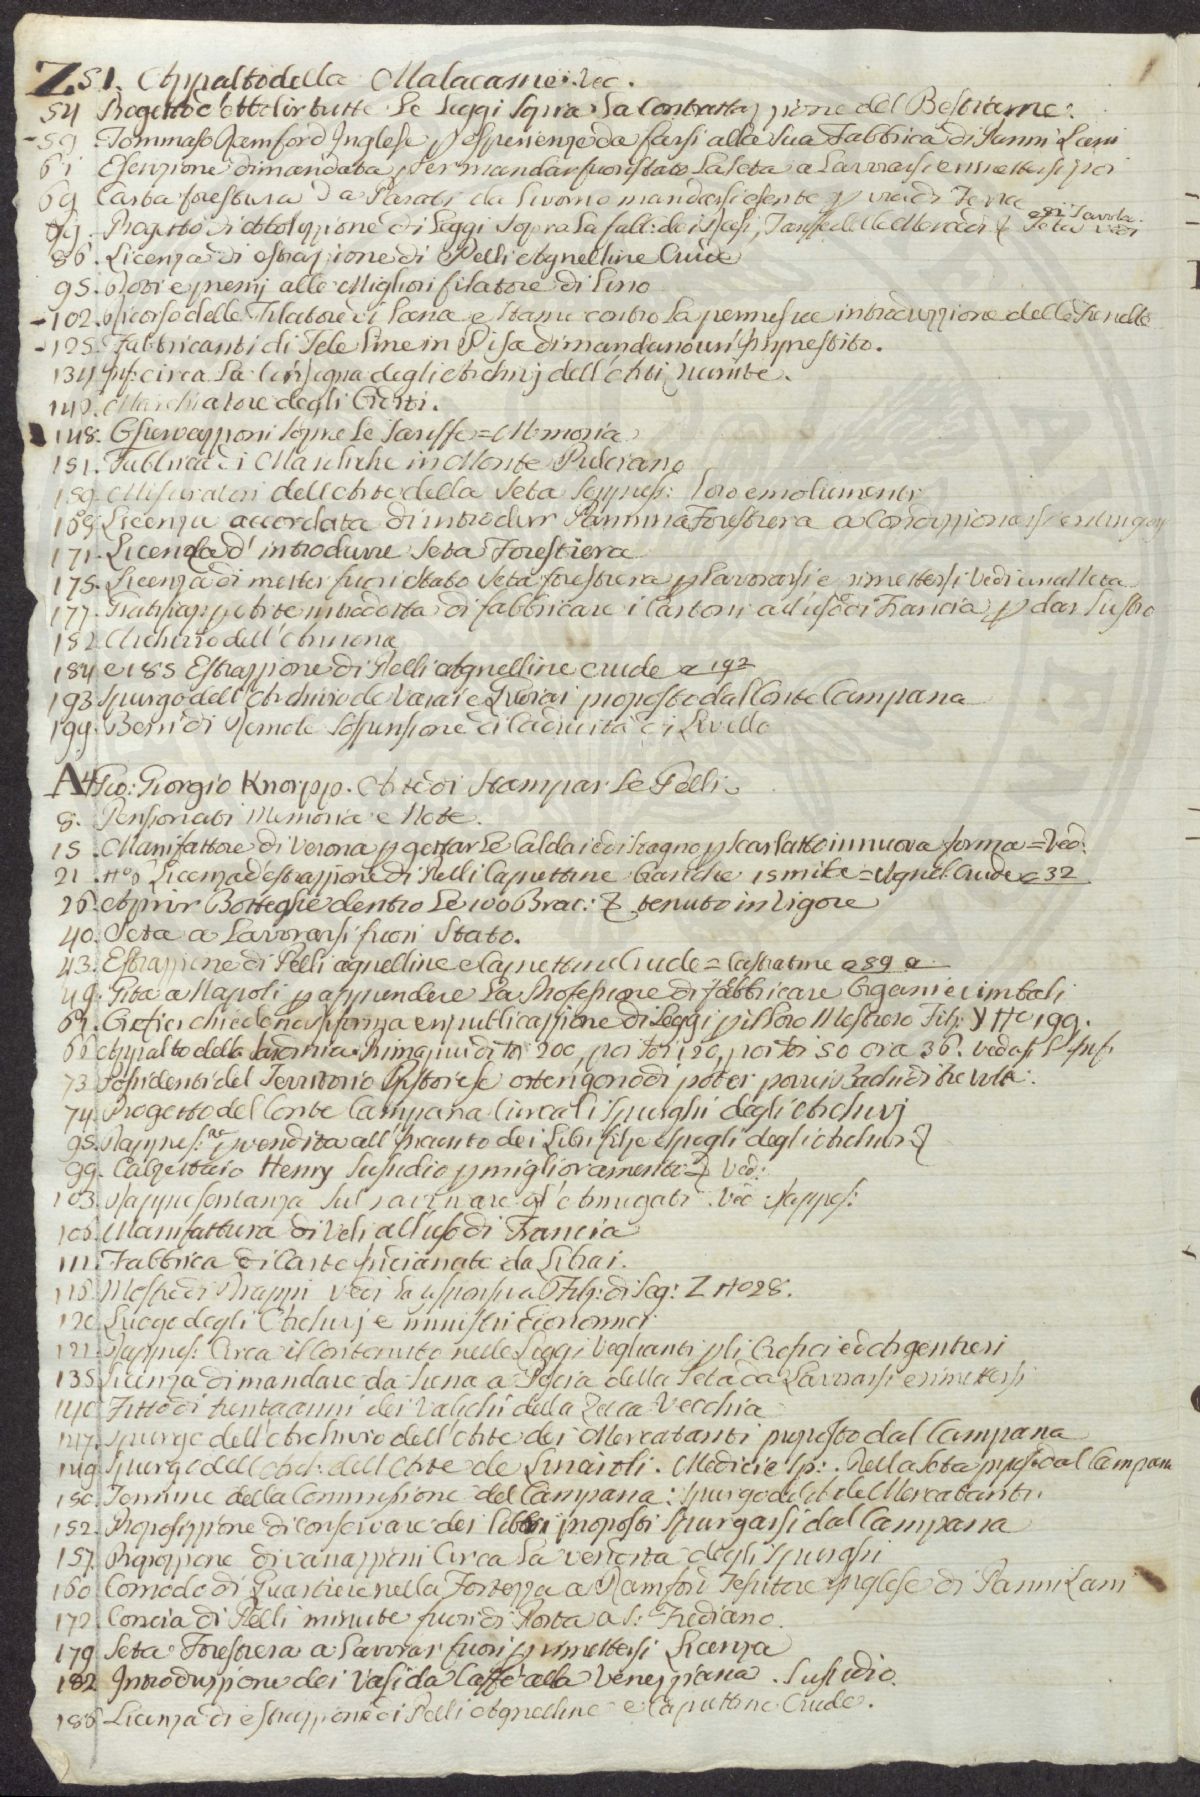 Z. 51. Appalto della Malacarne. Vec.
54 Progetto d'abolir tutte Le Leggi sopra La Contrattazzione del Bestiame:
- 59 Tommaso Ramford Inglese p esperienze da farsi alla Sua Fabbrica di Panni Lani
61 Esenzione dimandata per mandar fuori stato La Seta a Lavorarsi e rimettersi poi
69 Carta forestiera da Parati da Livorno mandarsi esente p via di Terra
69. Progetto di Abolizzione di Leggi sopra La fall: dei Pesi, Tariffe delle Mercedi & Seta Vedi
86. Licenza di estrazzione di Pelli Agnelline Crude
95. e premj alle Migliori filatore di Lino
- 102. Ricorso delle Filatore di Lana e Stame contro La permessa introduzzione delle
- 125. Fabbricanti di Tele Line in Pisa dimandano un' Inprestito.
134 Inf: circa La Consegna degli Archivj dell'Arti riunite.
142. Marchiatore degli Orefici.
148. Osservazzioni sopra Le Tariffe = Memoria
151. Fabbrica di Maioliche in Monte Pulciano
159. Misuratori dell'Arte della Seta soppres: Loro emolumenti
169. Licenza accordata d'introdurr Pannina Forestiera a Condizzionarsi
171. Licenza d'introdurre Seta Forestiera
175. Licenza di metter fuori stato Seta forestiera p Lavorarsi e rimettersi Vedi
177. Gratificaz: p Arte introdotta di fabbricare i Cartoni all'uso di Francia p dar Lustro
182. Archivio dell'Annona
184 e 185 Estrazzione di Pelli Agnelline crude e 192
193. Spurgo dell'Archivio de Vaiai e Quoiai proposto dal Conte Campana
199. Beni di Remole sospensione di Caducità di Livello
A 4 Gio: Giorgio Knorpp. Arte di Stampar Le Pelli
8. Pensionati Memoria e Note.
15. Manifattore di Verona p gettar Le Caldaie di stagno p scarlatto in nuova forma = Ved:
21. No Licenza d'estrazzione di Pelli Caprettine bianche e simile = Agnel: Crude e 32
26. Aprir Botteghe dentro Le 100 Brac: & tenuto in Vigore
40. Seta a Lavorarsi fuori Stato.
43. Estrazzione di Pelli agnelline e Caprettine Crude = Castratine e 89 e
49. Gita a Napoli p apprendere La Professione di fabbricare Organi e cimbali
64. Orefici chiedono riforma e ripubblicazzione di Leggi p il Loro Mestiero Filz: Y No 199.
66 Appalto della prima di tt 200, poi tt 120, poi tt 50 ora 36. Vedasi
73. Possidenti del Territorio Pistoiese ottengono di poter
74. Progetto del Conte Campana Circa Li Spurghi degli Archivj
95. Rappres:ne p vendita all'Incanto dei Libri filze e spogli degli Archivi &
99. Calzettaio Henry Sussidio p miglioramento & Ved:
103. Rappresentanza sul racquare gl'Armugati. Ved: Rappres:
106. Manifattura di Veli all'uso di Francia
111. Fabbrica di Carte da Librai.
116. Mostre di Drappi vedi La risponsiva Filz: di Seg: Z No 28.
120 Luogo degli Archivj e ministri Economici
121. Rappres: Circa il Contenuto nelle Leggi Veglianti p gli Orefici ed Argentieri
135. Licenza di mandare da Siena a Pescia della Seta da Lavorarsi e rimettersi
140 Fitto di trentaanni dei Valichi della Zecca Vecchia
147. Spurgo dell'Archivio dell'Arte dei Mercatanti proposto dal Campana
149. Spurgo dell'Arch: dell'Arte de Linaioli. Medici e Sp:. Della Seta propos: dal Campana
150. Termine della Commissione del Campana: Spurgo de Lib: de Mercatanti.
152. Proposizzione di conservare dei libri proposti Spurgarsi dal Campana
157. Proposizione di variazzioni Circa La vendita degli Spurghi
160 Comodo di Quartiere nella Fortezza a Ramford Tessitore Inglese di Panni Lani
172. Concia di Pelli minute fuori di Porta a S: Frediano.
179. Seta Forestiera a Lavorar fuori p rimettersi Licenza
182 Introduzzione dei Vasi da Caffè alla Venezziana. Sussidio.
186 Licenza di estrazzione di Pelli Agnelline e Caprettine Crude.